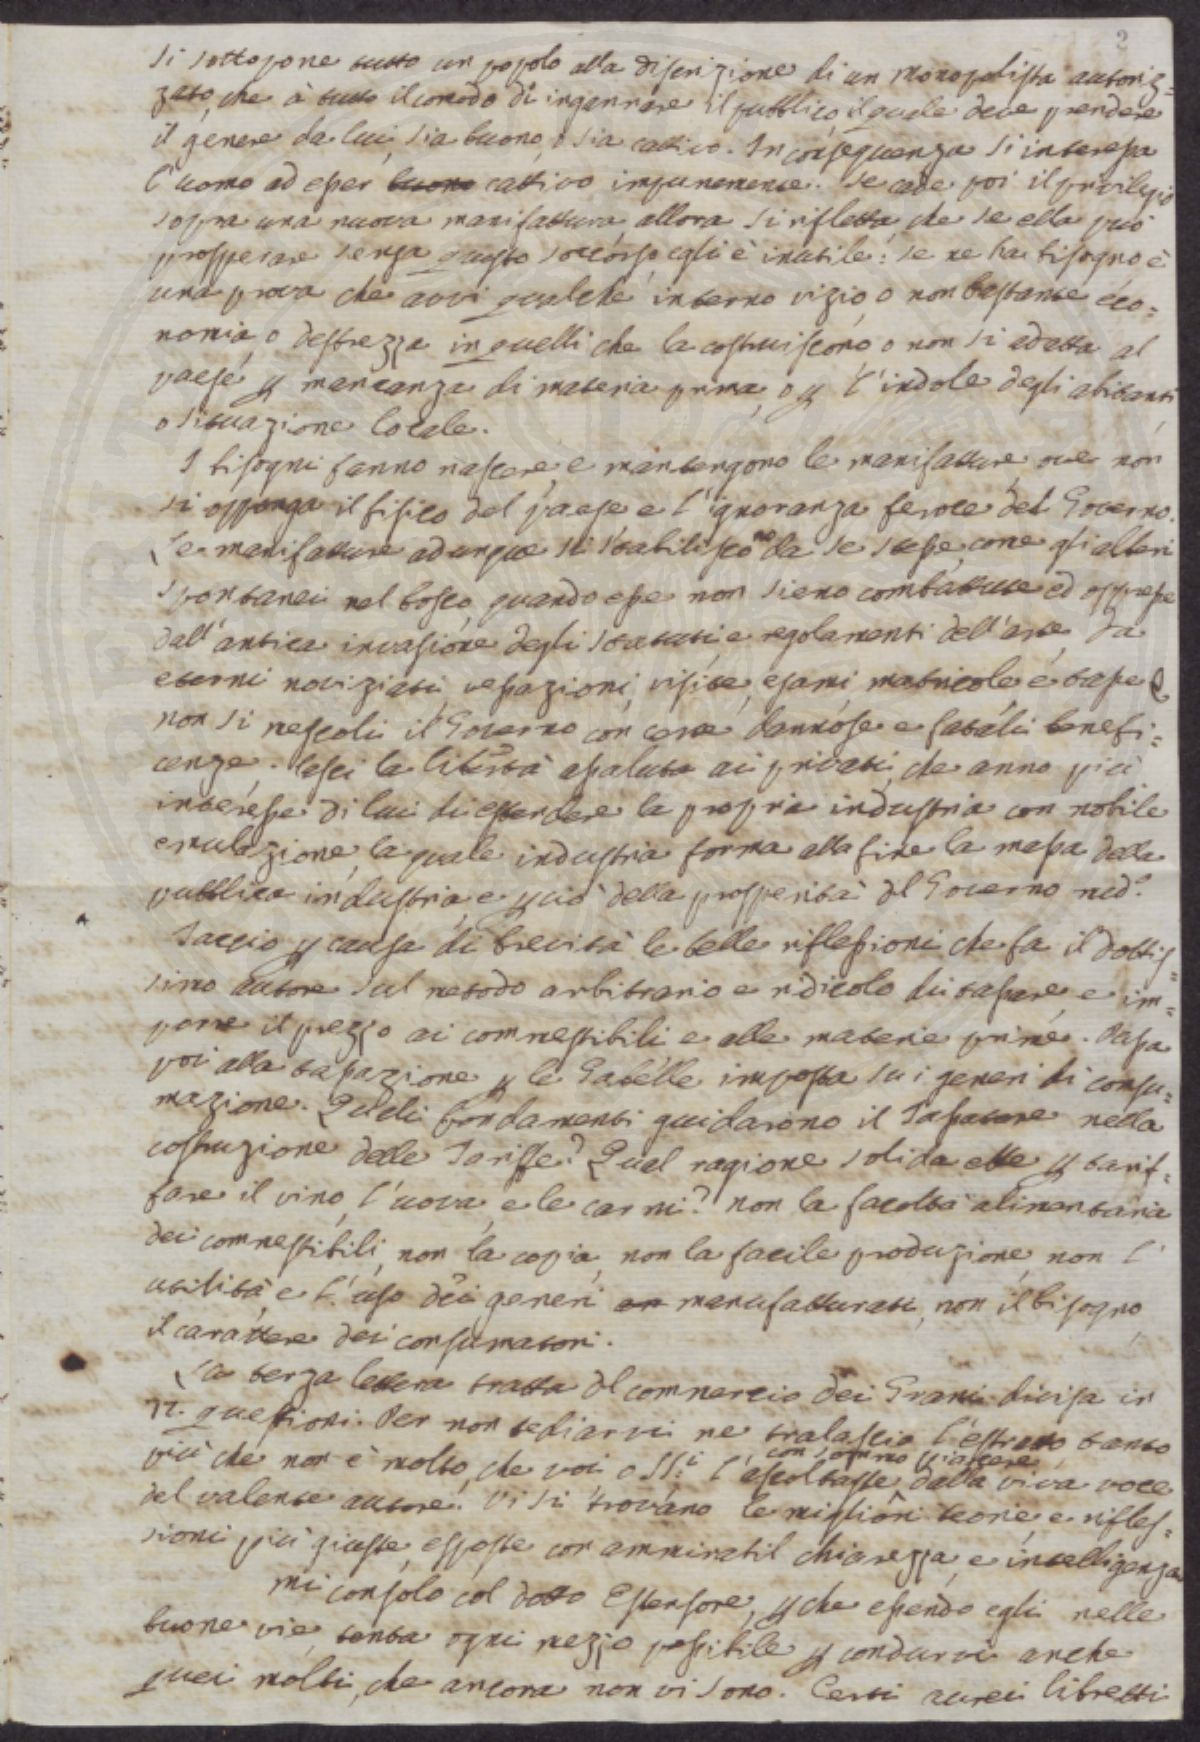 2
si sottopone tutto un popolo alla discrizione di un Monopolista autoriz=
zato, che à tutto il comodo di ingannare il pubblico, il quale deve prendere
il genere da lui, sia buono, o sia cattivo. In conseguenza si interessa
l'uomo ad esser buono cattivo impunemente. Se cade poi il privilegio
sopra una nuova manifattura, allora si rifletta, che se ella può
prosperare senza questo soccorso egli è inutile: se ne ha bisogno è
una prova che avvi qualche interno vizio, o non bastante eco=
nomia, o destrezza in quelli che la costruiscono o non si adatta al
paese ꝑ mancanza di materia prima, o ꝑ l'indole degli abitanti
o situazione locale.
I bisogni fanno nascere, e mantengono le manifatture ove non
si opponga il fisico del paese e l'ignoranza feroce del Governo.
Le manifatture adunque si stabiliscono da se stesse, come gli alberi
spontanei nel bosco, quando esse non sieno combattute ed oppresse
dall'antica invasione degli statuti e regolamenti dell'arte, da
eterni noviziati, vessazioni, visite, esami, matricole, e tasse e
non si mescoli il Governo con certe dannose e fatali benefi=
cenze. Lasci la libertà assoluta ai privati, che anno più
interesse di lui di estendere la propria industria con nobile
emulazione, la quale industria forma alla fine la massa della
pubblica industria, e ꝑ ciò della prosperità del Governo med.º
Taccio ꝑ causa di brevità le belle riflessioni che fa il dottis=
simo autore sul metodo arbitrario e ridicolo di tassare e im=
porre il prezzo ai commestibili e alle materie prime. Passa
poi alla tassazione ꝑ le Gabelle imposta su i generi di consu=
mazione. Quali fondamenti guidarono il Tassatore nella
costruzione delle Tariffe? Qual ragione solida ebbe ꝑ tarif=
fare il vino, l'uova, e le carni? non la facoltà alimentaria
dei commestibili, non la copia, non la facile produzione, non l'
utilità, e l'uso dei generi manufatturati, non il bisogno,
il carattere dei consumatori.
La terza lettera tratta del commercio dei Grani divisa in
12. questioni. Per non tediarvi ne tralascio l'estratto tanto
più che non è molto, che voi o SS.i l'ascoltaste con sommo piacere dalla viva voce
del valente autore. Vi si trovano le migliori teorie, e rifles=
sioni più giuste, esposte con ammirabil chiarezza, e intelligenza
mi consolo col dotto Estensore, ꝑ che essendo egli nelle
buone vie, tenta ogni mezzo possibile ꝑ condurvi anche
quei molti, che ancora non vi sono. Certi aurei libretti